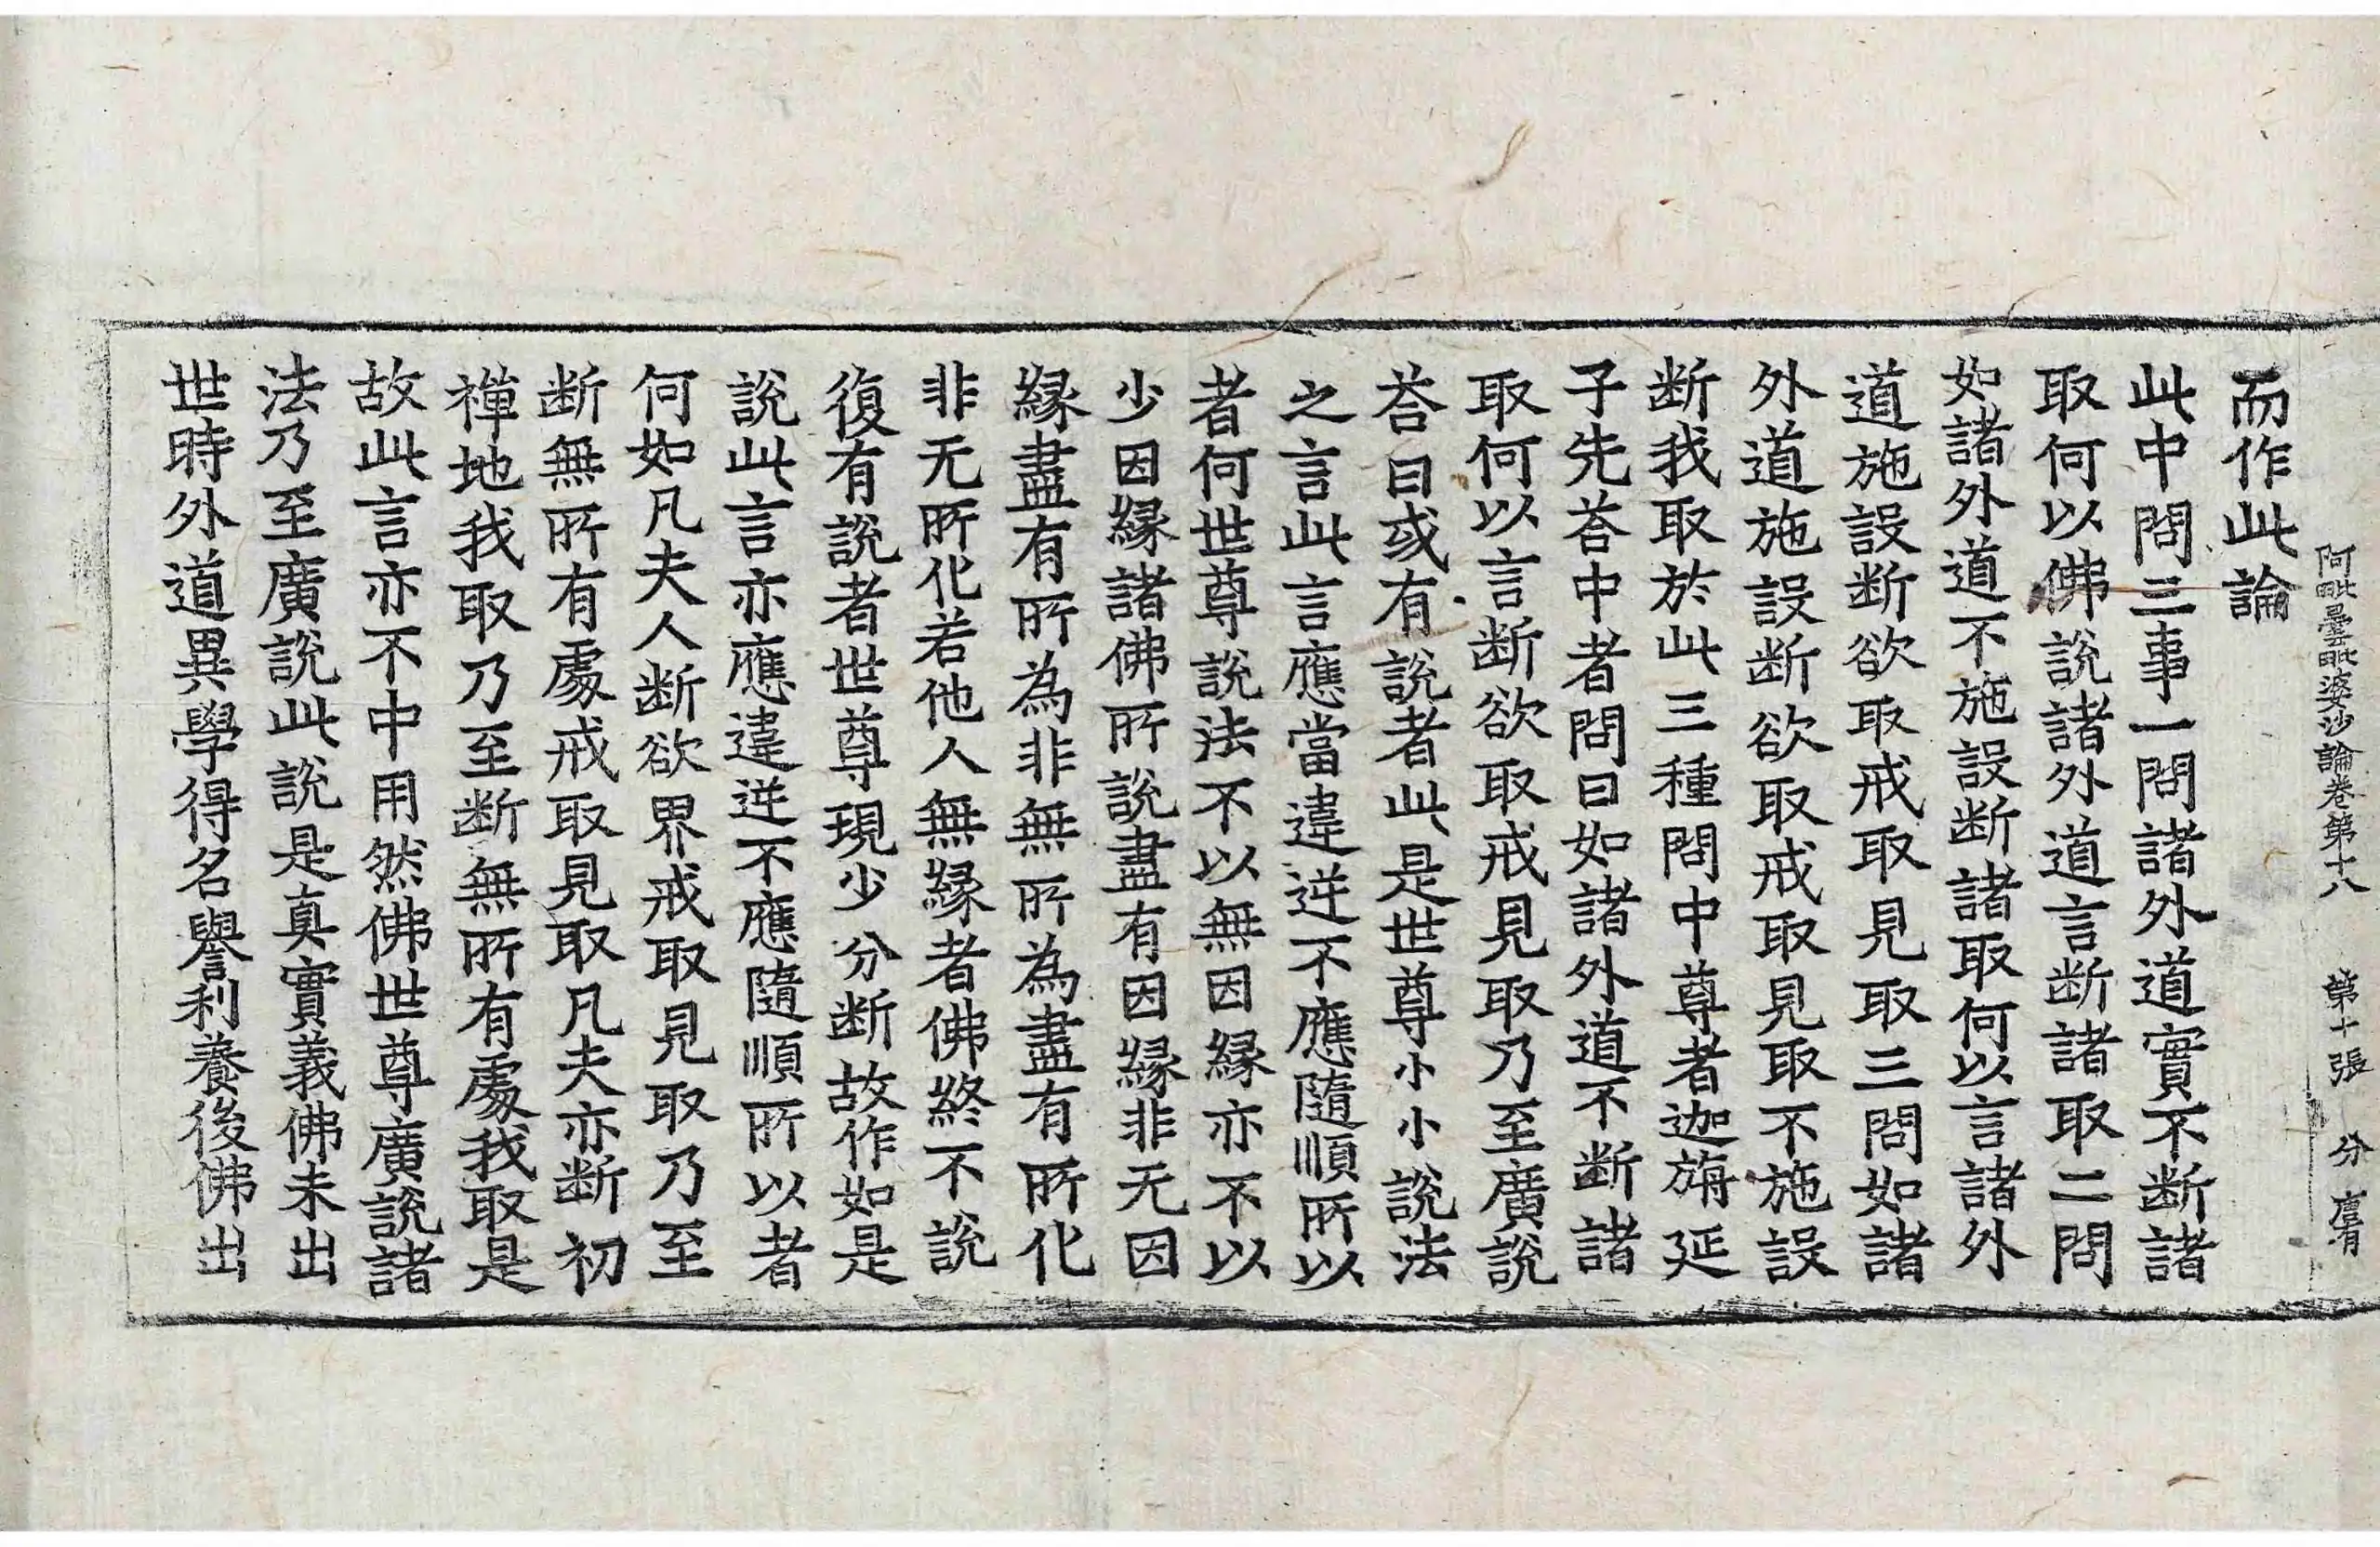 阿毗曇毗婆沙論卷第十八 第十張 分
而作此論
此中問三事一問諸外道實不断諸
取何以佛說諸外道言断諸取二問
如諸外道不施設断諸取何以言諸外
道施設断欲取戒取見取三問如諸
外道施設断欲取戒取見取不施設
断我取於此三種問中尊者迦旃延
子先荅中者問曰如諸外道不断諸
取何以言断欲取戒見取乃至廣說
荅曰或有說者此是世尊小小說法
之言此言應當違逆不應隨順所以
者何世尊說法不以無因縁亦不以
少因縁諸佛所說盡有因縁非无因
縁盡有所為非無所為盡有所化
非无所化若他人無縁者佛終不說
復有說者世尊現少分断故作如是
說此言亦應違逆不應隨順所以者
何如凡夫人断欲界戒取見取乃至
断無所有處戒取見取凡夫亦断初
禪地我取乃至断無所有處我取是
故此言亦不中用然佛世尊廣說諸
法乃至廣說此說是真實義佛未出
世時外道異學得名譽利養後佛出